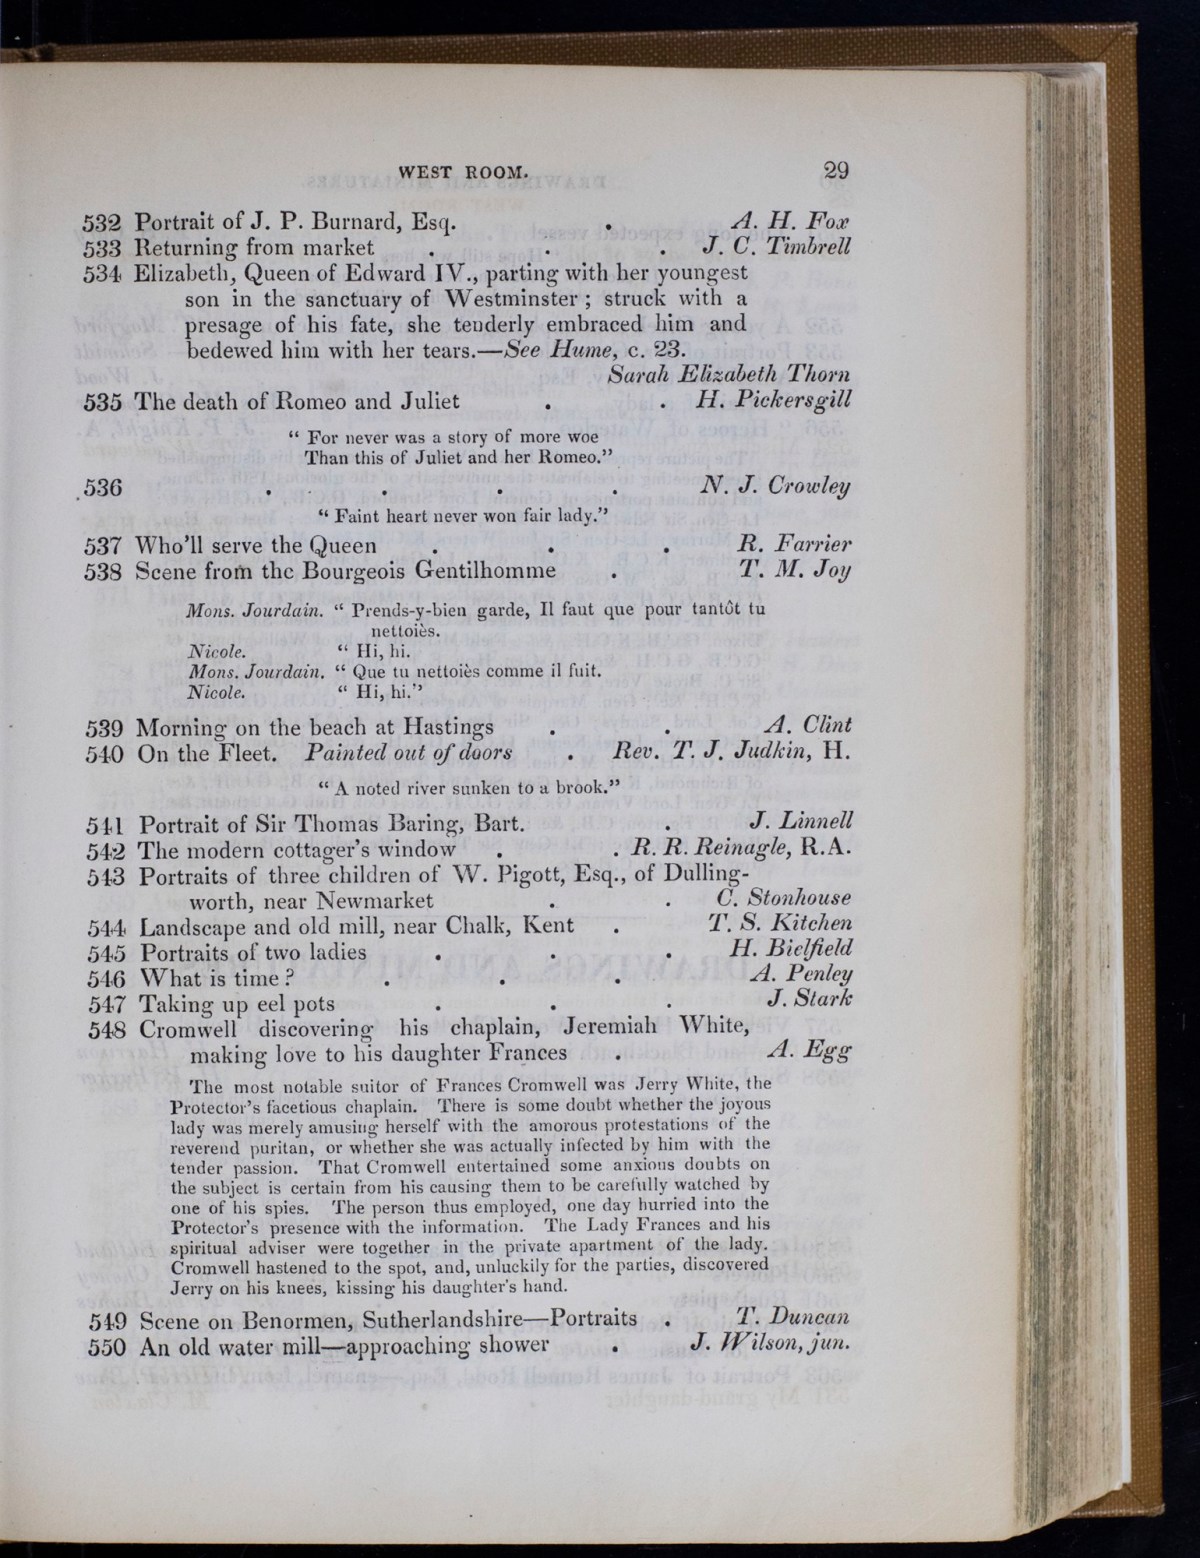 WEST ROOM. 29
532 Portrait of J. P. Burnard, Esq. . A. H. Fox
533 Returning from market . . . J. C. Timbrell
534 Elizabeth, Queen of Edward IV., parting with her youngest
son in the sanctuary of Westminster ; struck with a
presage of his fate, she tenderly embraced him and
bedewed him with her tears.—See Hume, c. 23.
Sarah Elizabeth Thorn
535 The death of Romeo and Juliet . . H. Pickersgill
“ For never was a story of more woe
Than this of Juliet and her Romeo.”
536 . . . . N. J. Crowley
“ Faint heart never won fair lady.”
537 Who’ll serve the Queen . . . R. Farrier
538 Scene from the Bourgeois Gentilhomme . T. M. Joy
Mons. Jourdain. “ Prends-y-bien garde, Il faut que pour tantôt tu
nettoiès.
Nicole. “ Hi, hi.
Mons. Jourdain. “ Que tu nettoiès comme il fuit.
Nicole. “ Hi, hi.”
539 Morning on the beach at Hastings . . A. Clint
540 On the Fleet. Painted out of doors . Rev. T. J. Judkin, H.
“ A noted river sunken to a brook.”
541 Portrait of Sir Thomas Baring, Bart. . J. Linnell
542 The modern cottager’s window . . R. R. Reinagle, R.A.
543 Portraits of three children of W. Pigott, Esq., of Dulling-
worth, near Newmarket . . C. Stonhouse
544 Landscape and old mill, near Chalk, Kent . T. S. Kitchen
545 Portraits of two ladies . . . H. Bielfield
546 What is time ? . . . A. Penley
547 Taking up eel pots . . . J. Stark
548 Cromwell discovering his chaplain, Jeremiah White,
making love to his daughter Frances . A. Egg
The most notable suitor of Frances Cromwell was Jerry White, the
Protector’s facetious chaplain. There is some doubt whether the joyous
lady was merely amusing herself with the amorous protestations of the
reverend puritan, or whether she was actually infected by him with the
tender passion. That Cromwell entertained some anxious doubts on
the subject is certain from his causing them to be carefully watched by
one of his spies. The person thus employed, one day hurried into the
Protector’s presence with the information. The Lady Frances and his
spiritual adviser were together in the private apartment of the lady.
Cromwell hastened to the spot, and, unluckily for the parties, discovered
Jerry on his knees, kissing his daughter’s hand.
549 Scene on Benormen, Sutherlandshire—Portraits . T. Duncan
550 An old water mill—approaching shower . J. Wilson, jun.